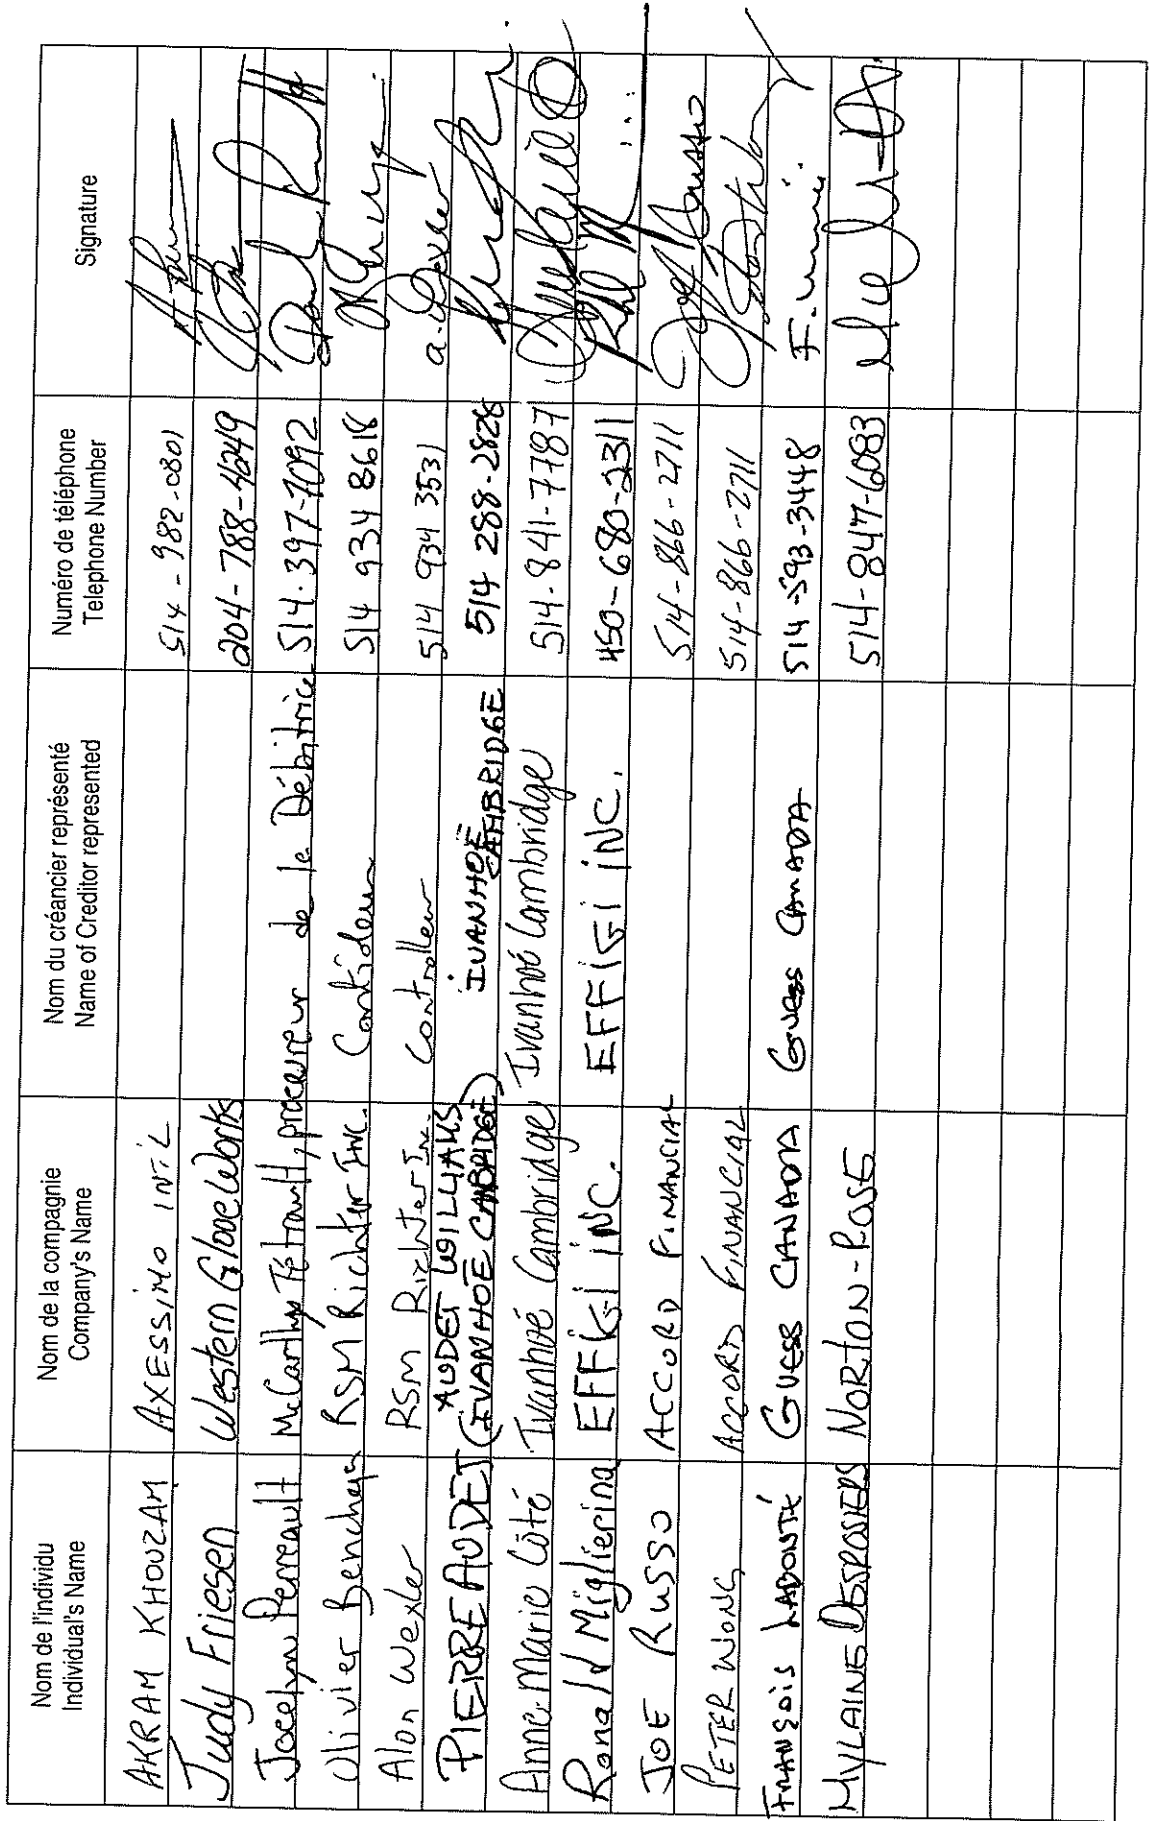 Nom de l'individu
Individual's Name
Nom de la compagnie
Company's Name
Nom du créancier représenté
Name of Creditor represented
Numéro de téléphone
Telephone Number
Signature
AKRAM KHOUZAM AXESSIMO INT'L 514-982-0801
Judy Friesen Western Glove Works 204-788-4249
Jocelyn Perreault McCarthy Tétrault, procureur de le Débitrice 514.397-7092
Olivier Benchaya RSM Richter Inc. Contrôleur 514 934 8618
Alon Wexler RSM Richter Inc. Controlleur 514 934 3531 a. Wexler
PIERRE AUDET AUDET WILLIAMS (IVANHOÉ CAMBRIDGE) IVANHOÉ CAMBRIDGE 514 288-2828
Anne-Marie Côté Ivanhoé Cambridge Ivanhoé Cambridge 514-841-7787
Ronald Miglierina EFFIGI INC. EFFIGI INC. 450-680-2311
JOE RUSSO ACCORD FINANCIAL 514-866-2711 Joe Russo
PETER WONG ACCORD FINANCIAL 514-866-2711
FRANÇOIS LABONTÉ GUESS CANADA GUESS CANADA 514-593-3448
MYLAINE DESROSIERS NORTON-ROSE 514-847-6083